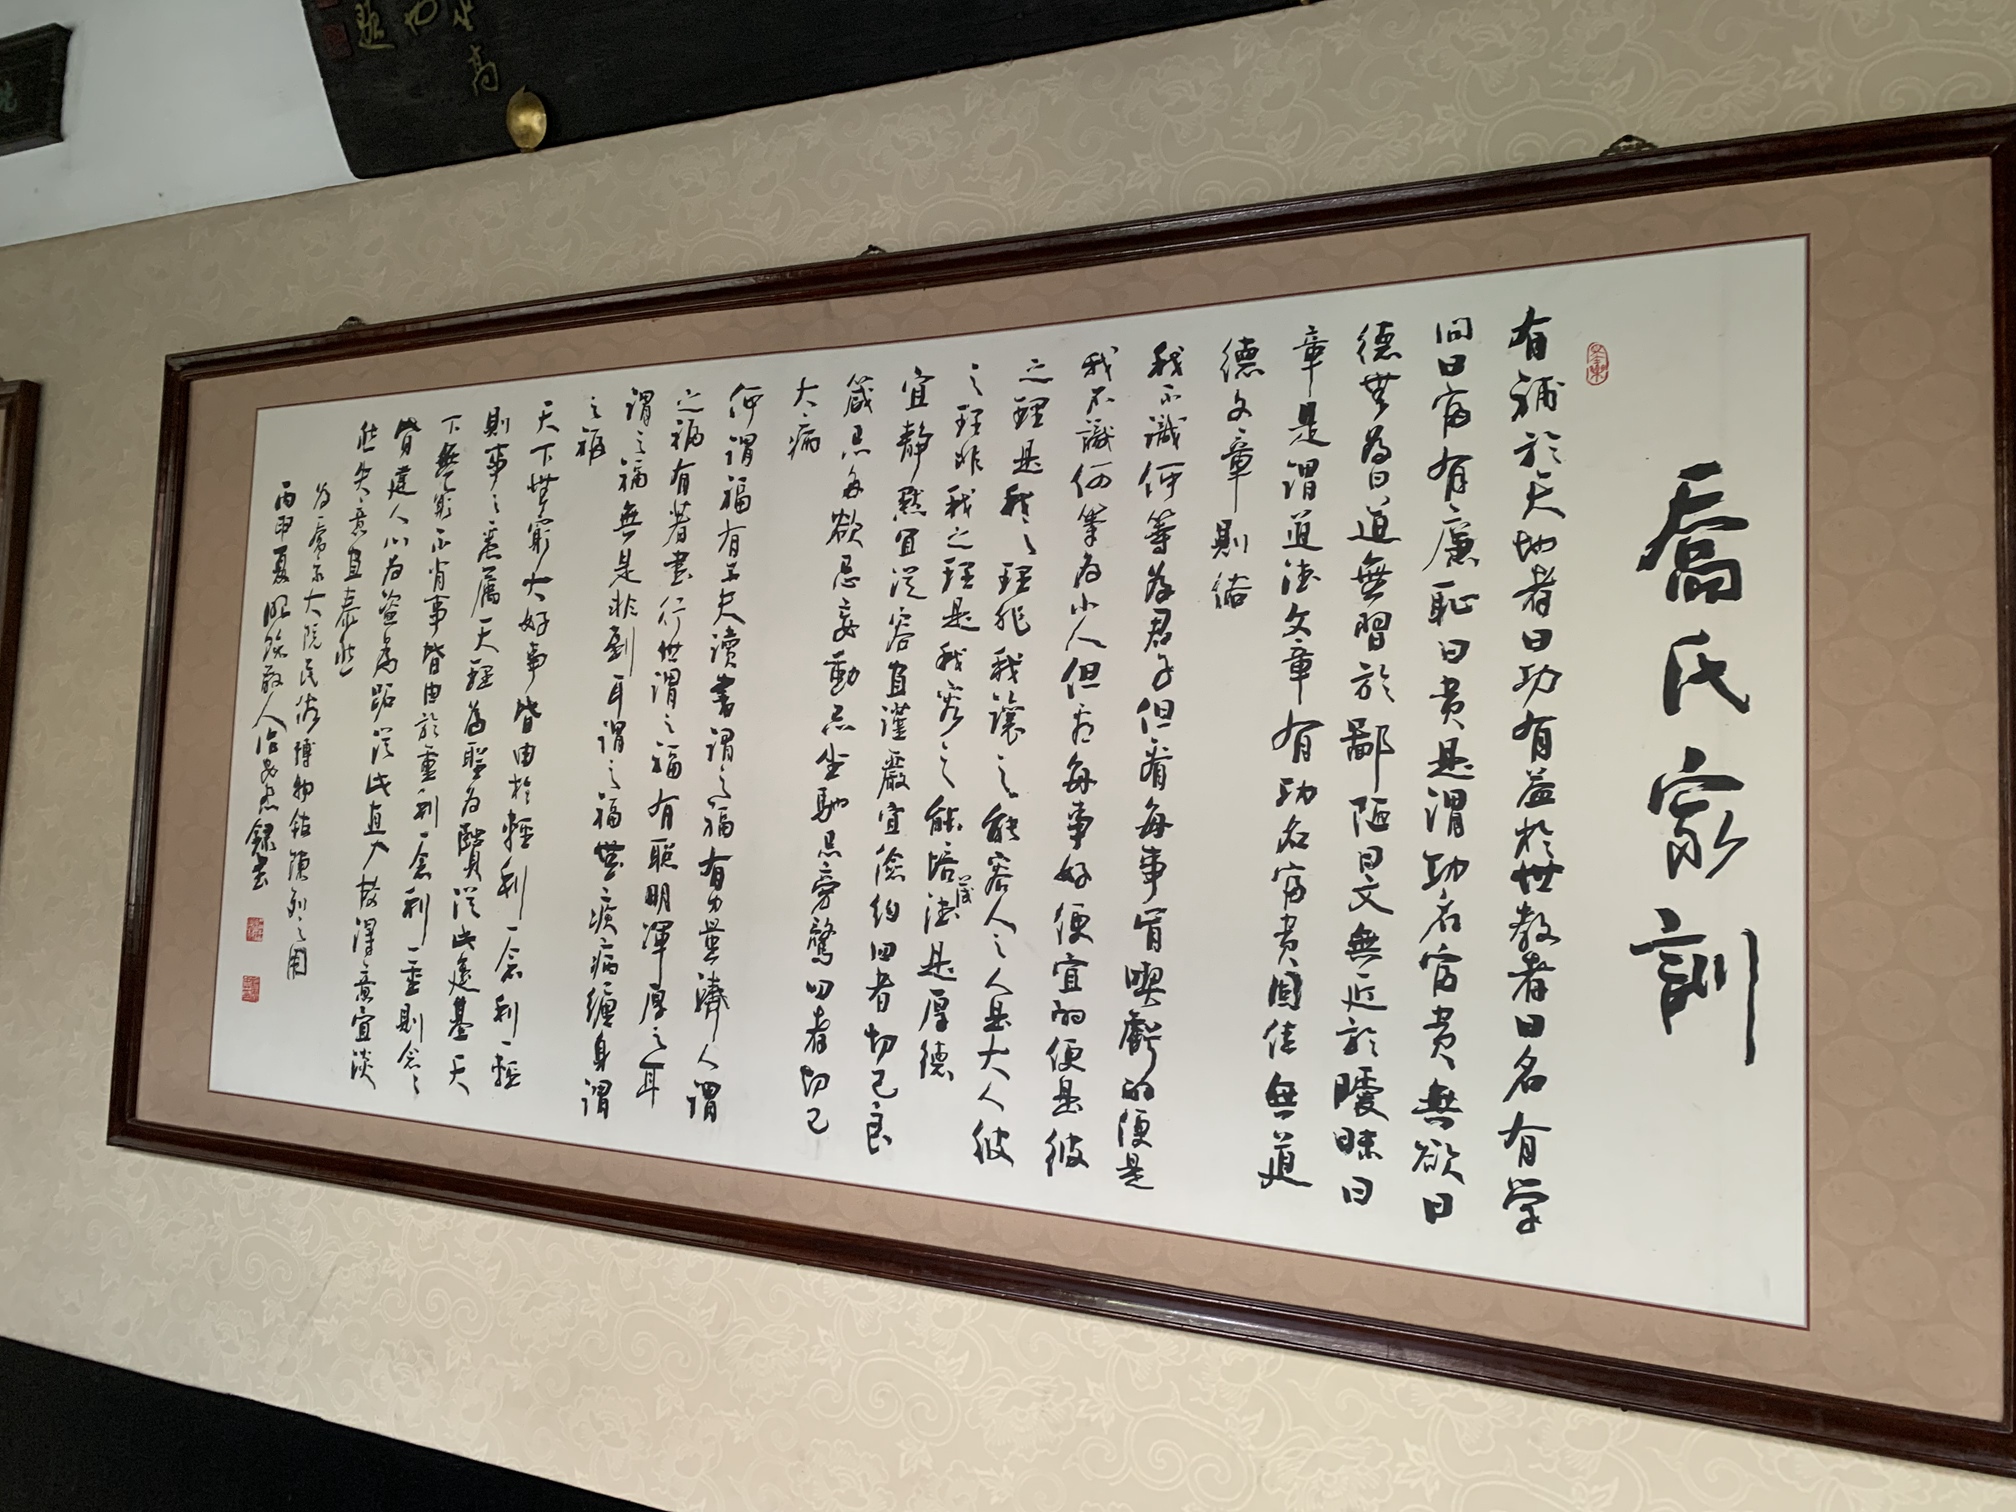 喬氏家訓
有補於天地者曰功有益於世教者曰名有学
问曰富有廉恥曰贵是谓功名富贵無欲曰
德無为曰道無習於鄙陋曰文無近於曖昧曰
章是谓道德文章有功名富贵固佳無道
德文章則俗
我不識何等为君子但看每事肯喫虧的便是
我不識何等为小人但看每事好便宜的便是彼
之理是我之理非我讓之能容人之人是大人彼
之理非我之理是我容之能培德是厚德
宜静默宜從容宜謹嚴宜儉约四者切己良
箴忌多欲忌妄動忌坐馳忌旁骛四者切己
大病
何谓福有工夫读書谓之福有力量濟人谓
之福有著書行世谓之福有聪明渾厚之耳
谓之福無是非到耳谓之福無疾病纏身谓
之福
天下無窮大好事皆由於輕利一念利一輕
則事事悉属天理为聖为賢從此進基天
下無窮不肖事皆由於重利一念利一重則念念
皆違人心为盗为跖從此直入故得意宜淡
然失意宜泰然
为喬家大院民俗博物馆陳列之用
丙申夏
錄書
高